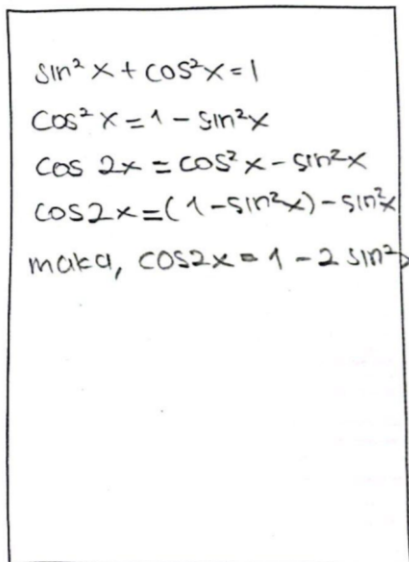 sin² x + cos²x = 1
cos² x = 1 - sin²x
cos 2x = cos² x - sin²x
cos2x = (1 - sin²x) - sin²x
maka, cos2x = 1 - 2 sin²x